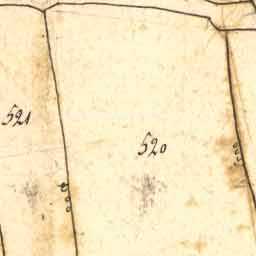 521
520